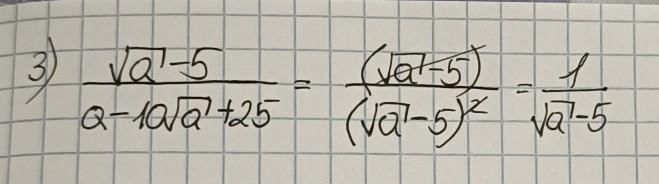 3) (√a-5)/(a-10√a+25) = (√a-5)/(√a-5)² = 1/(√a-5)